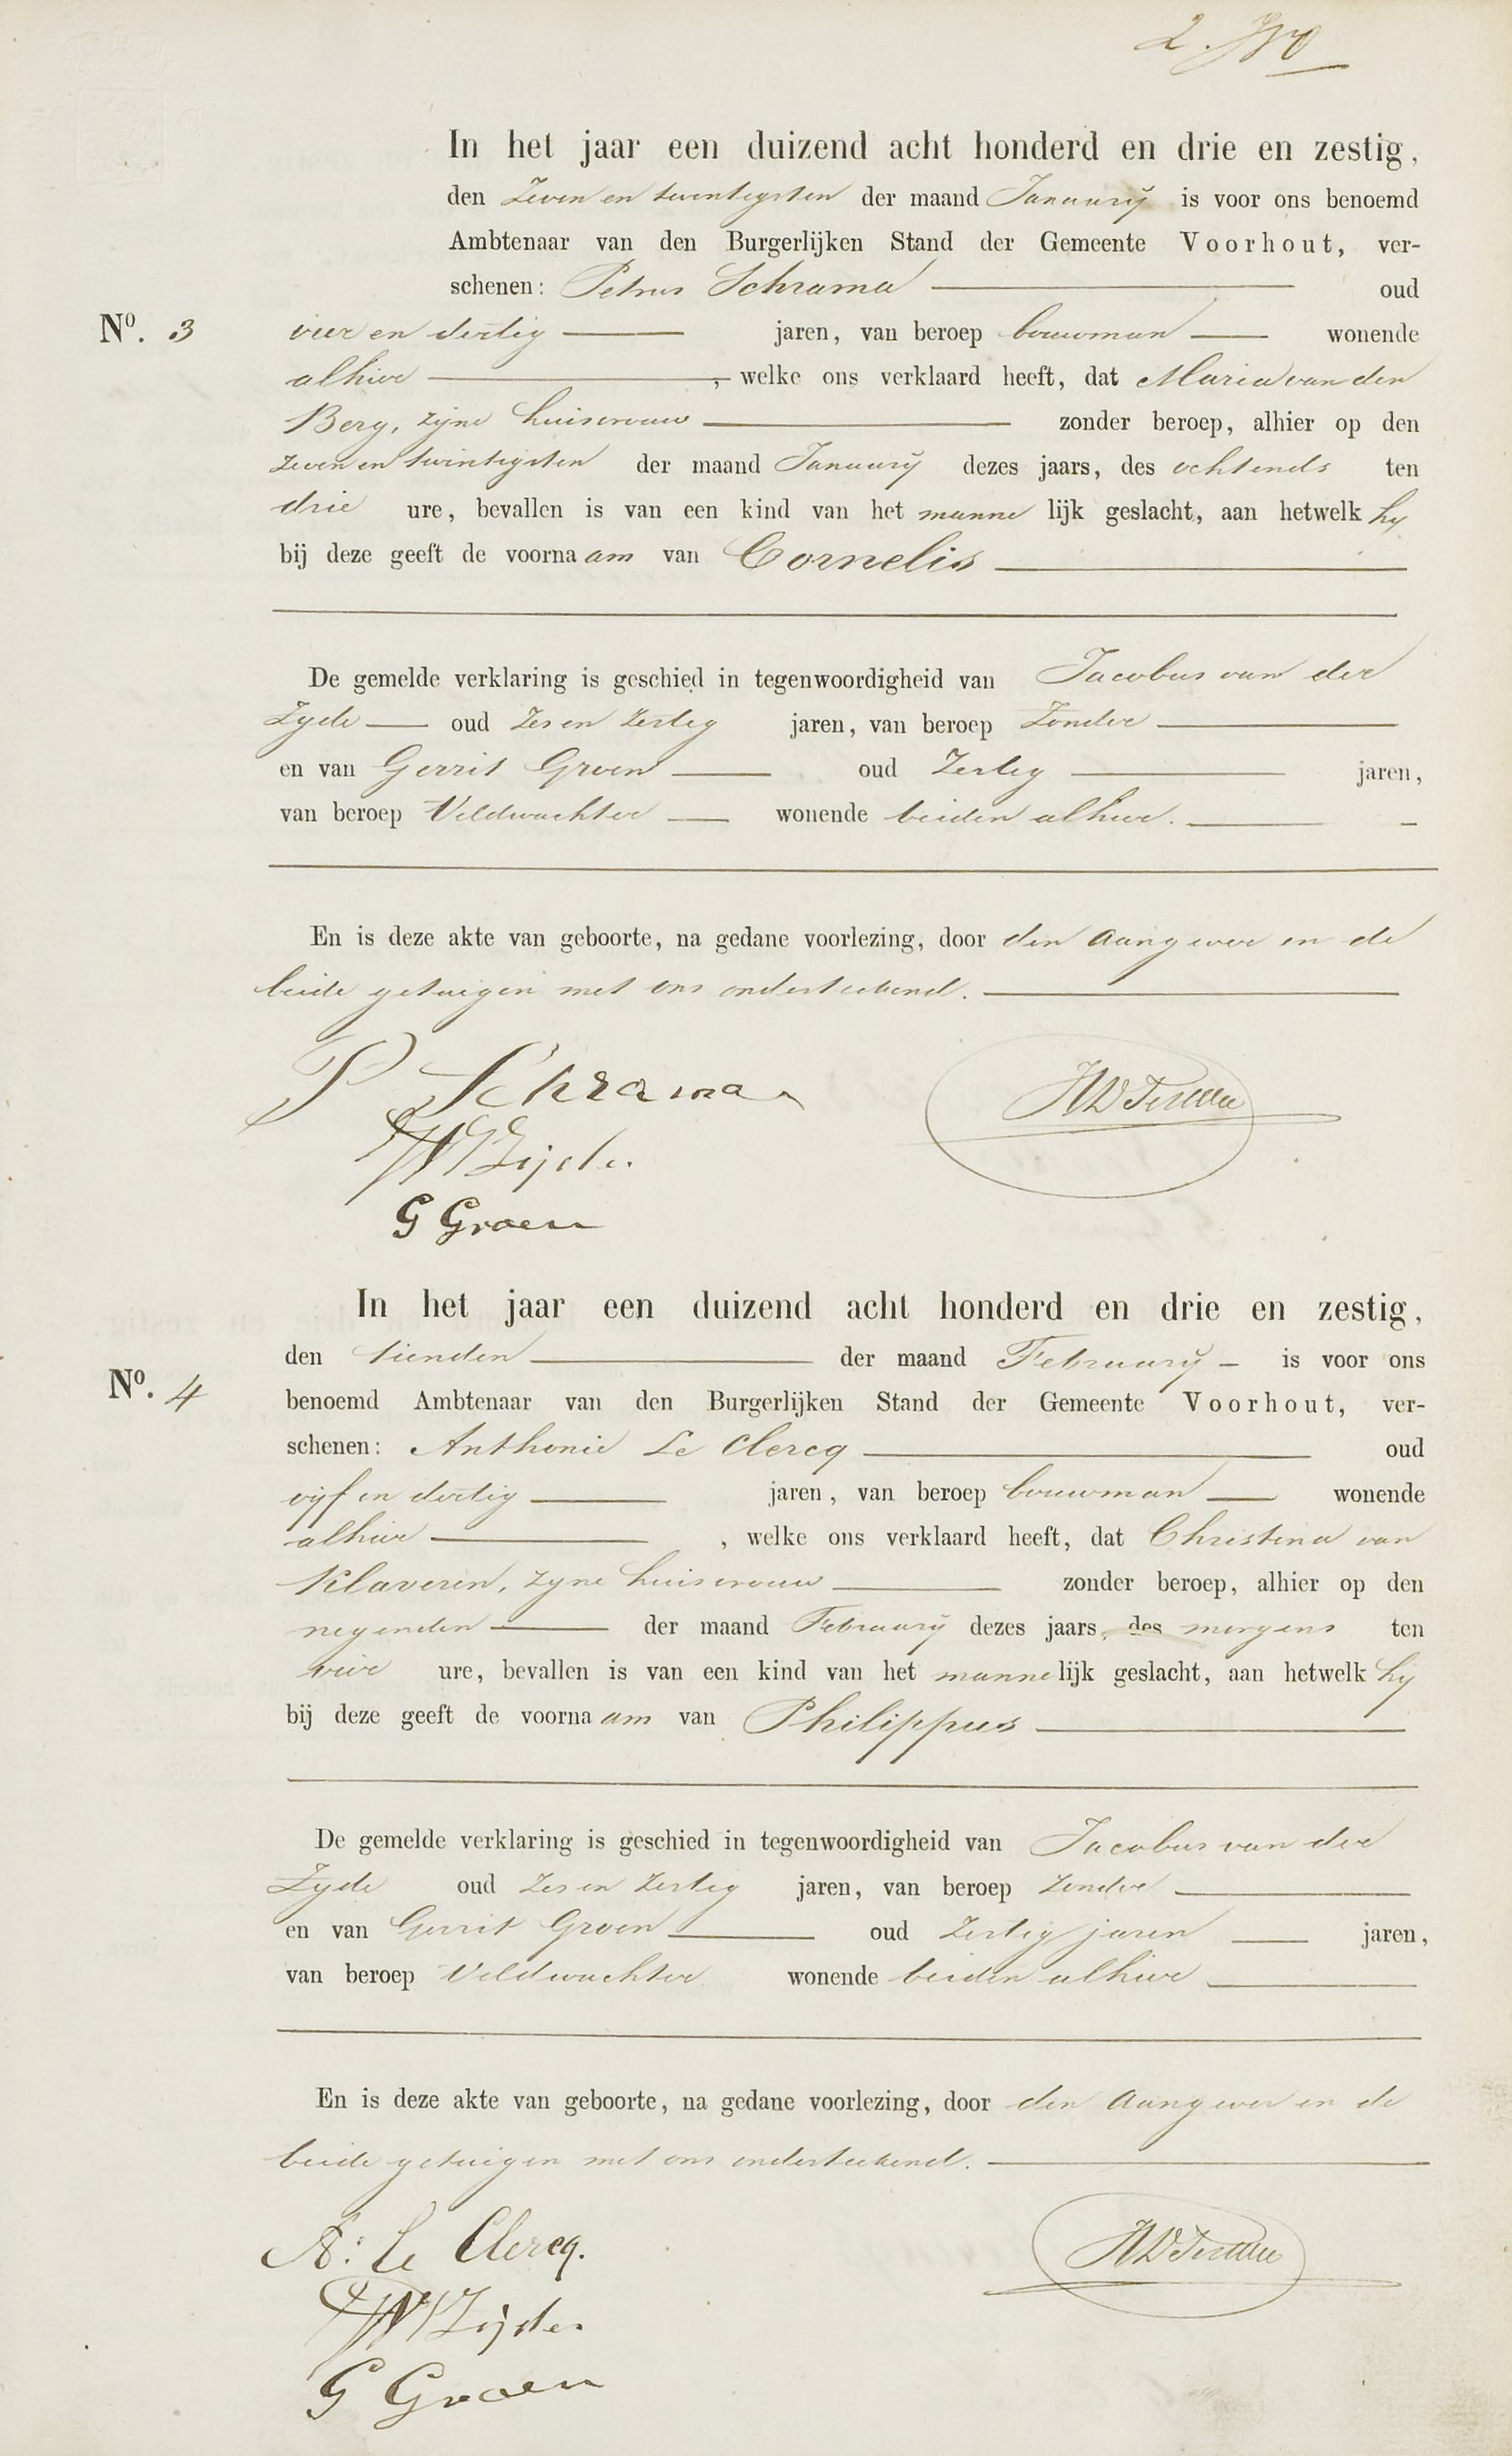 2.
In het jaar een duizend acht honderd en drie en zestig,
den Zeven en twintigsten der maand January is voor ons benoemd
Ambtenaar van den Burgerlijken Stand der Gemeente Voorhout, ver-
schenen: Petrus Schrama oud
No. 3 vier en dertig jaren, van beroep bouwman wonende
alhier, welke ons verklaard heeft, dat Maria van den
Berg, zyne huisvrouw zonder beroep, alhier op den
zeven en twintigsten der maand January dezes jaars, des ochtends ten
drie ure, bevallen is van een kind van het mannelijk geslacht, aan hetwelk hy
bij deze geeft de voornaam van Cornelis
De gemelde verklaring is geschied in tegenwoordigheid van Jacobus van der
Zyde oud Zes en Zestig jaren, van beroep Zonder
en van Gerrit Groen oud Zestig jaren,
van beroep Veldwachter wonende beiden alhier.
En is deze akte van geboorte, na gedane voorlezing, door den Aangever en de
beide getuigen met ons onderteekend.
P Schrama
Zijde.
G Groen
In het jaar een duizend acht honderd en drie en zestig,
den tienden der maand February is voor ons
No. 4 benoemd Ambtenaar van den Burgerlijken Stand der Gemeente Voorhout, ver-
schenen: Anthonie Le Clercq oud
vijf en dertig jaren, van beroep bouwman wonende
alhier, welke ons verklaard heeft, dat Christina van
Klaveren, zyne huisvrouw zonder beroep, alhier op den
negenden der maand February dezes jaars, des morgens ten
vier ure, bevallen is van een kind van het mannelijk geslacht, aan hetwelk hy
bij deze geeft de voornaam van Philippus
De gemelde verklaring is geschied in tegenwoordigheid van Jacobus van der
Zyde oud Zes en Zestig jaren, van beroep Zonder
en van Gerrit Groen oud Zestig jaren jaren,
van beroep Veldwachter wonende beiden alhier
En is deze akte van geboorte, na gedane voorlezing, door den Aangever en de
beide getuigen met ons onderteekend.
A: Le Clercq.
Zijde.
G Groen